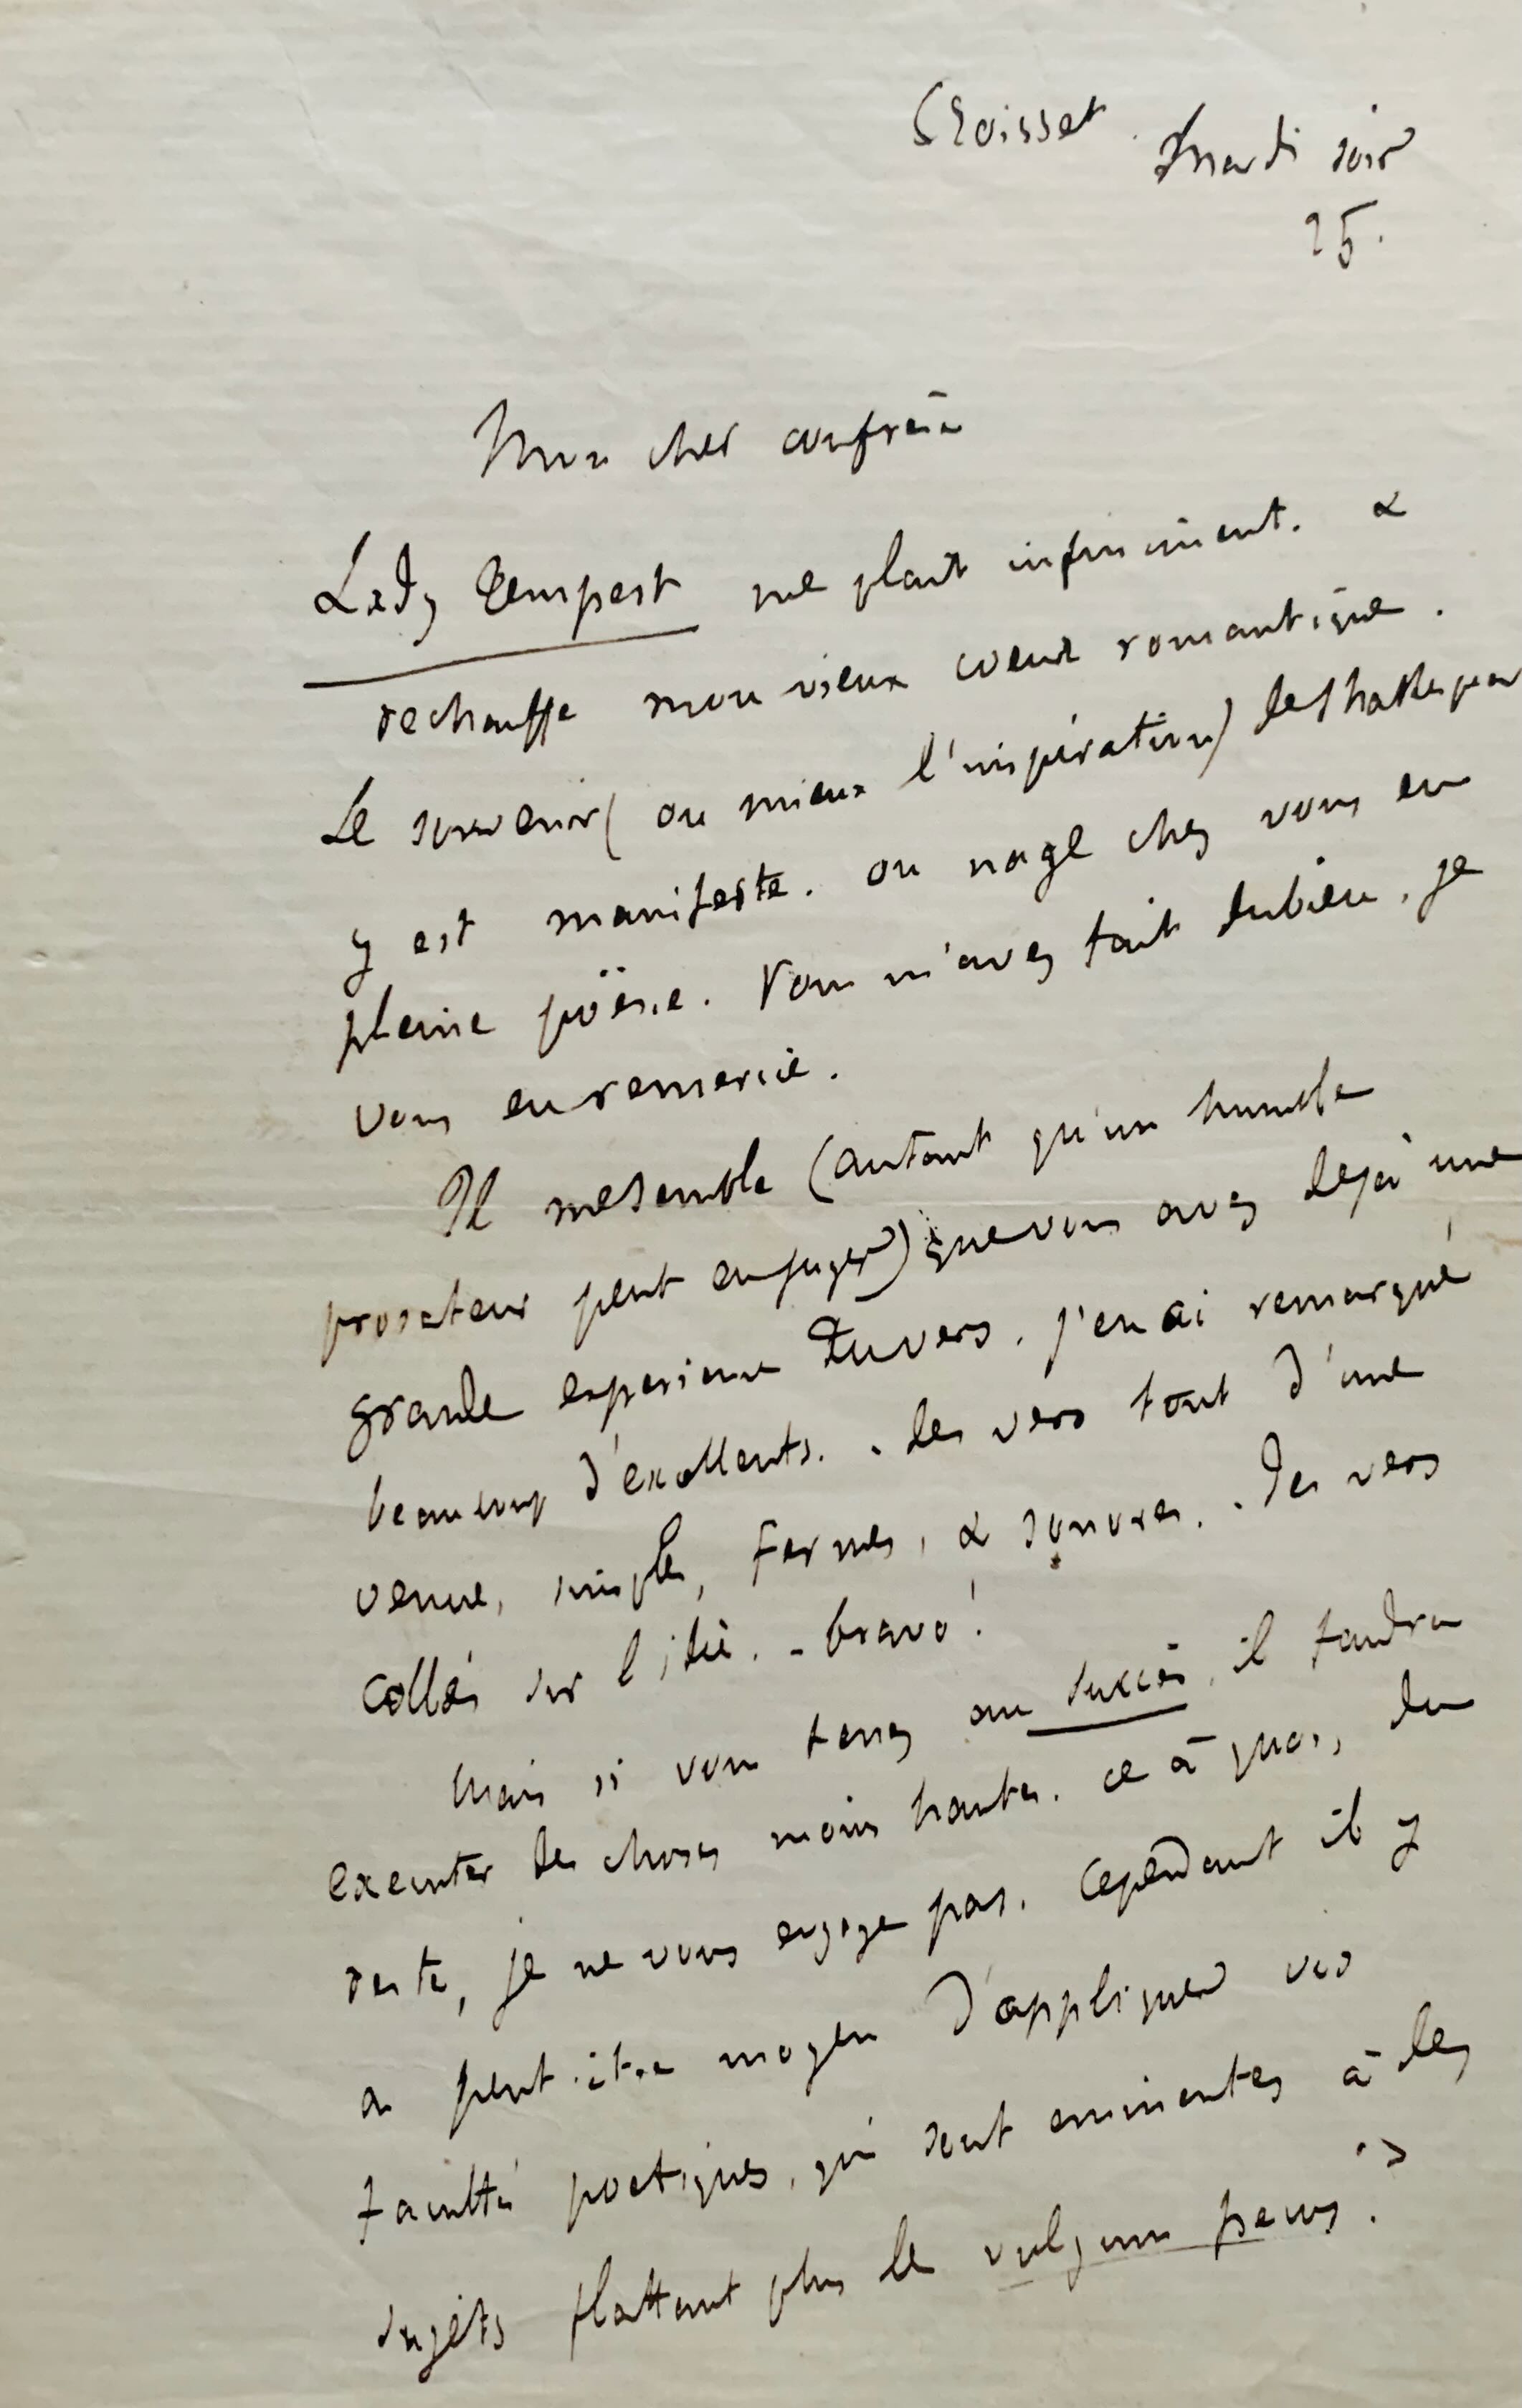 Croisset. Mardi soir
25.
Mon cher confrère
Lady Tempest me plait infiniment. &
rechauffe mon vieux coeur romantique.
Le souvenir (ou mieux l'inspiration) de Shakespear
y est manifeste. on nage chez vous en
pleine poësie. Vous m'avez fait du bien. je
vous en remercie.
Il me semble (autant qu'un humble
prosateur peut en juger) que vous avez deja une
grande experience du vers. j'en ai remarqué
beaucoup d'excellents. - des vers tout d'une
venue, simples, fermes, & sonores. - des vers
collés sur l'idée. - bravo!
Mais si vous tenez au succès, il faudra
executer des choses moins hautes. ce à quoi, du
reste, je ne vous engage pas. Cependant il y
a peut-être moyen d'appliquer vos
facultés poetiques, qui sont eminentes à des
sujets flattant plus le vulgum pecus.